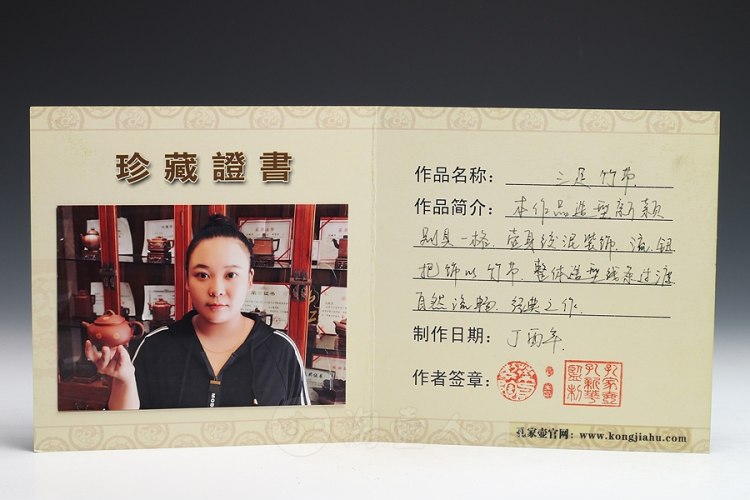 珍藏證書
作品名称：三足竹节
作品简介：本作品造型新颖
别具一格，壶身绞泥装饰，流、钮
把饰以竹节，整体造型线条过渡
自然流畅，经典之作。
制作日期：丁酉年.
作者签章：
孔家壶
孔新华
監制
孔家壶官网：www.kongjiahu.com